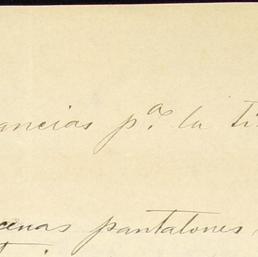 ancias pª. la ti
cenas pantalones